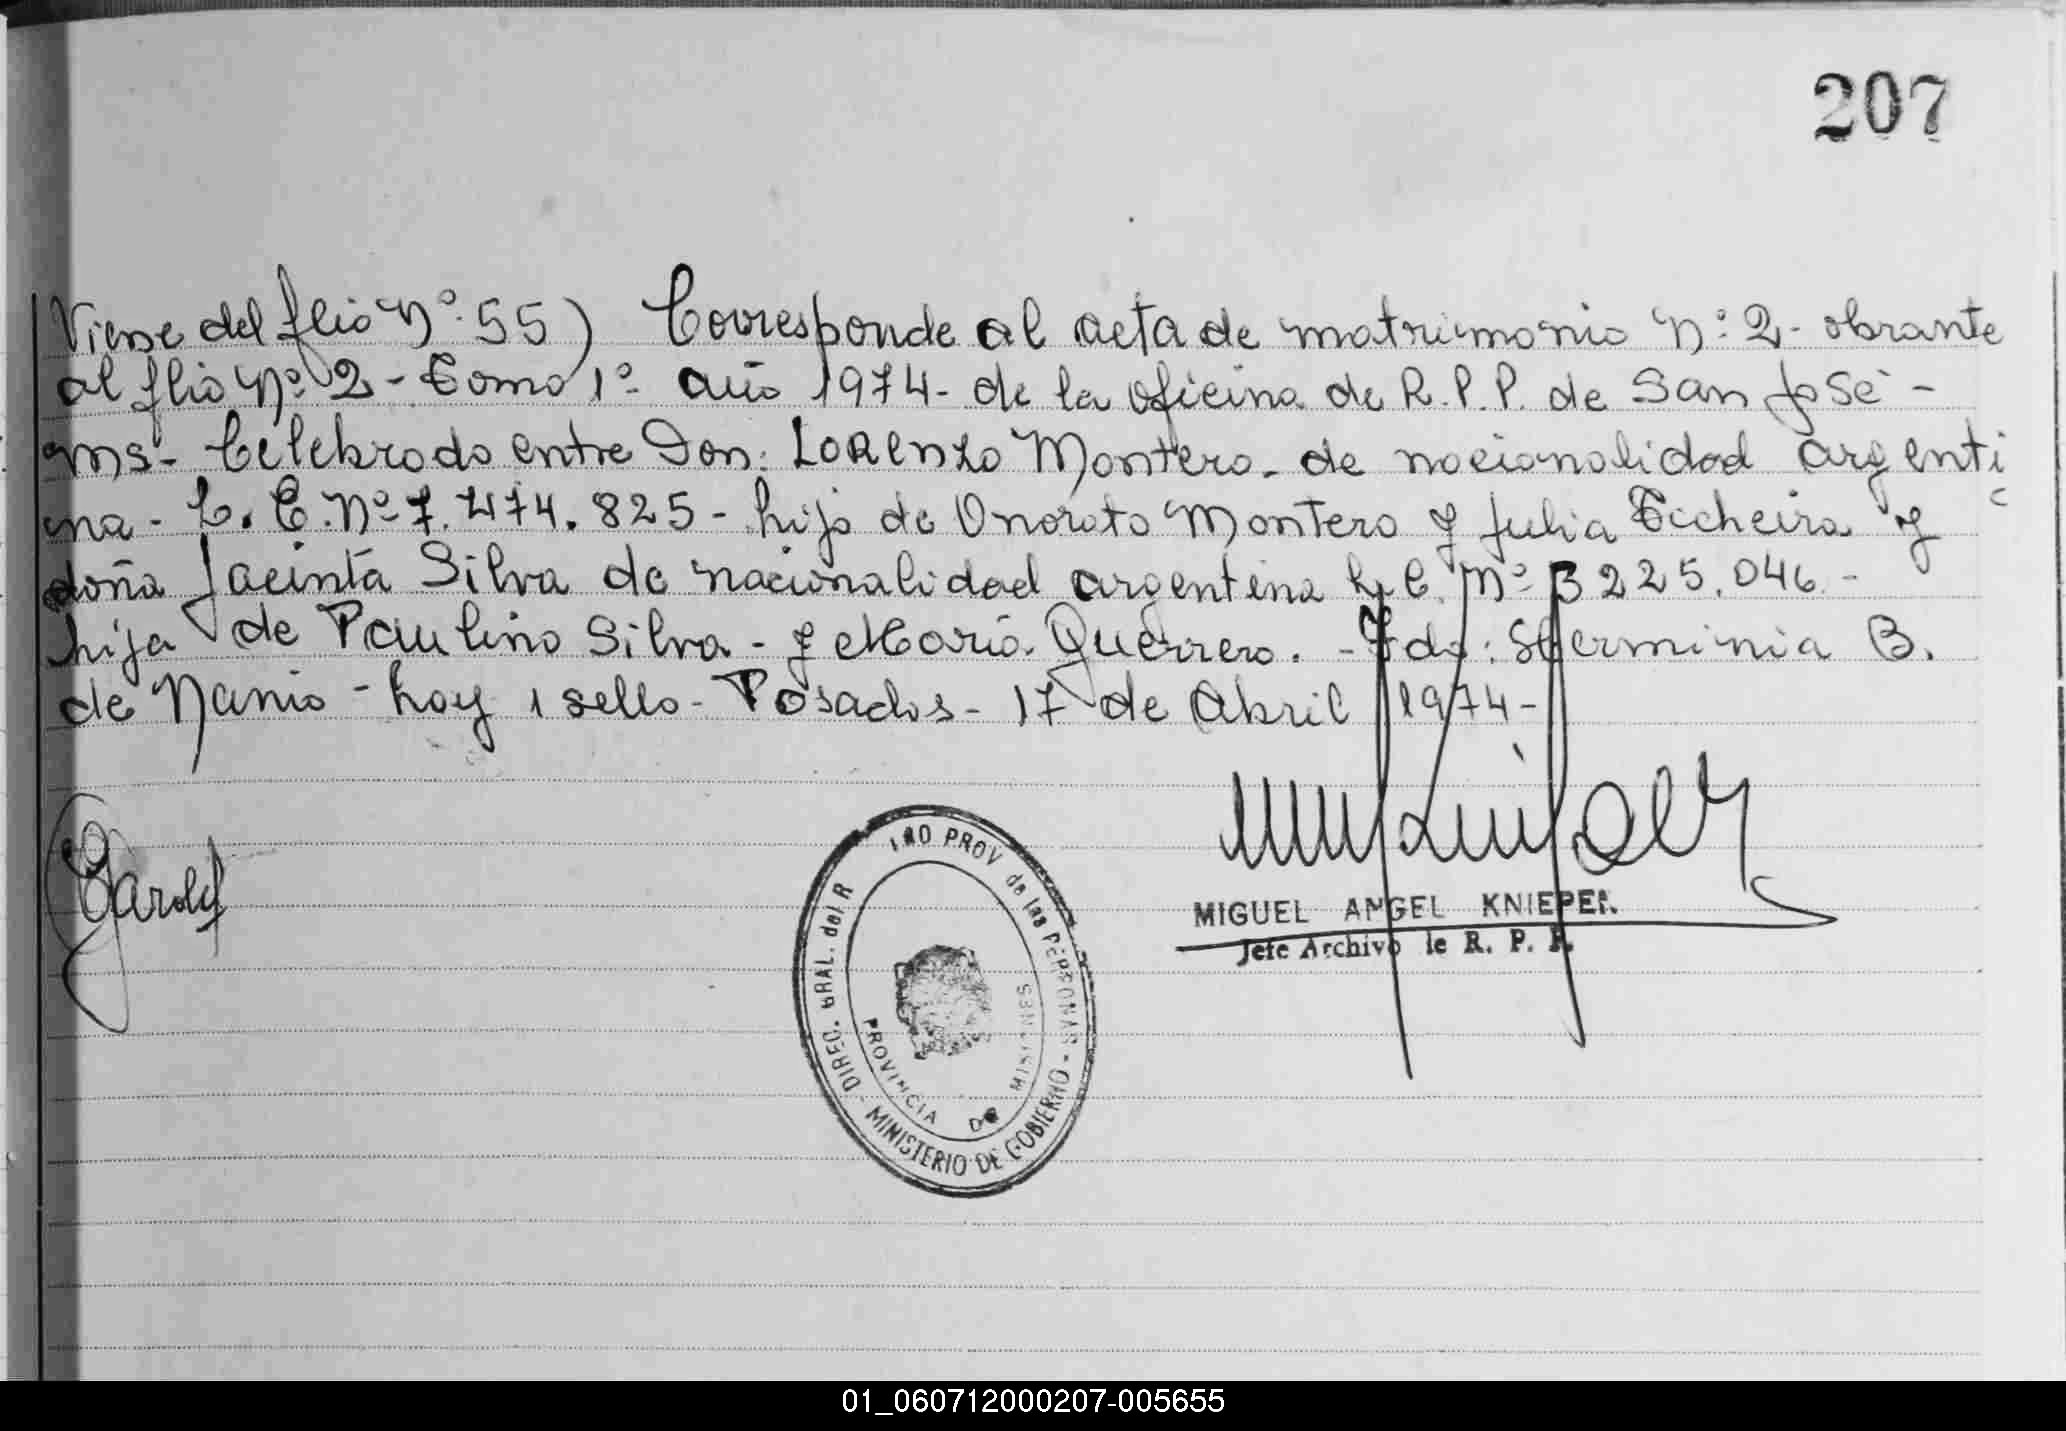 207
Viene del flio Nº 55) Corresponde al acta de matrimonio Nº 2- obrante
al flio Nº 2 - Tomo 1º año 1974- de la oficina de R.P.P. de San José -
Celebrado entre Don: LORENZO Montero- de nacionalidad argenti
na - Nº 7.474.825 - hijo de Onorato Montero y Julia Techeira y
doña Jacinta Silva de nacionalidad argentina L.C. Nº 3225.046 -
hija de Paulino Silva - y Maria Guerrero. - Fdo: Herminia B.
de Nanio - hay 1 sello - Posadas - 17 de Abril 1974 -
MIGUEL ANGEL
Jefe Archivo de R. P. P.
DIREC. GRAL. del R PROV de las PERSONAS
MINISTERIO DE GOBIERNO
PROVINCIA DE MISIONES
01_060712000207-005655